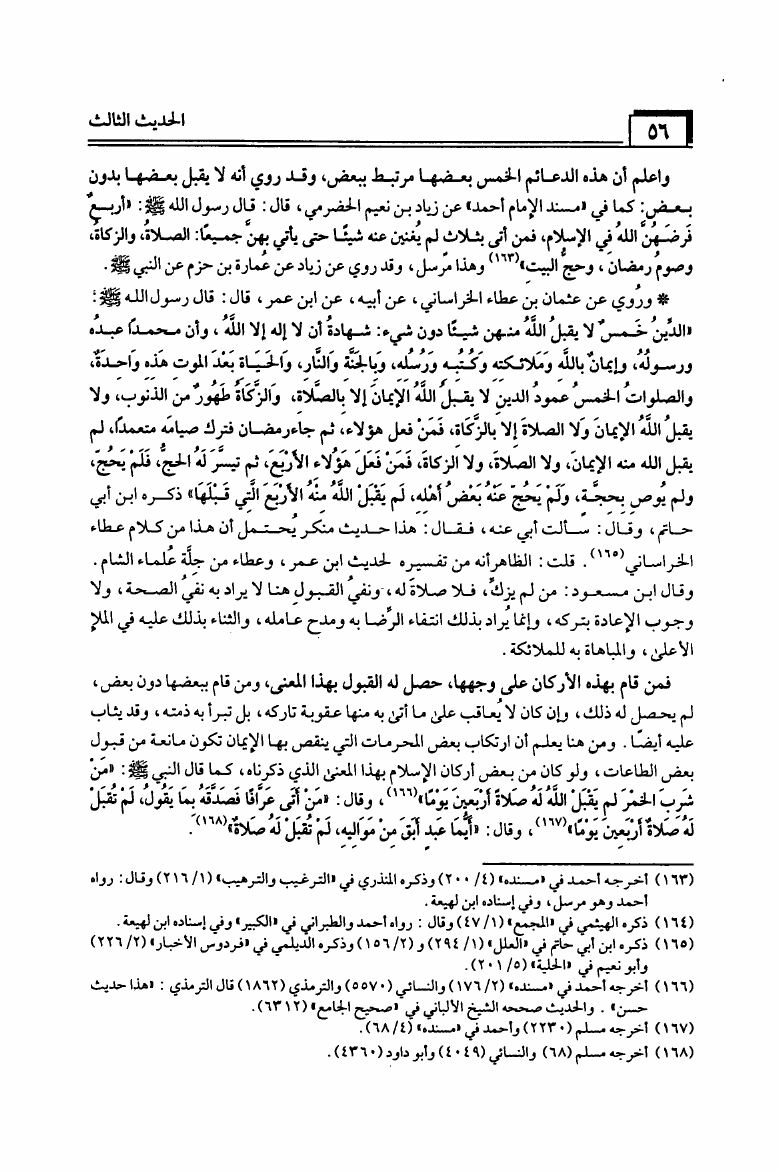 ٥٦
الحديث الثالث
واعلم أن هذه الدعـائم الخمس بعـضهـا مرتبط ببعض، وقـد روي أنه لا يقبل بعـضهـا بدون
بـعـض: كما في «مسند الإمام أحمد» عن زياد بن نعيم الحضرمي، قال: قال رسول الله ﷺ: «أربـعٌ
فَرضَـهُنَّ اللهُ في الإسلام، فمن أتى بثـلاث لم يُغنين عنه شيئًـا حتى يأتي بهنَّ جمـيعًا: الصـلاةُ، والزكاةُ،
وصومُ رمضان، وحجُّ البيت»(١٦٣) وهذا مرسل، وقد روي عن زياد عن عُمارة بن حزم عن النبي ﷺ.
* ورُوي عن عثمان بن عطاء الخراساني، عن أبيه، عن ابن عمر، قال: قال رسول اللـه ﷺ:
«الدِّينُ خَـمـسٌ لا يقبلُ اللَّهُ منـهن شيـئًا دون شيء: شـهادةُ أن لا إله إلا اللَّهُ، وأن مـحمـدًا عبـدُه
ورسـولُهُ، وإيمانٌ باللَّه وَمَلائـكته وكُتُبـه ورُسُله، وبالجَنَّة والنَّار، والحَيَـاة بَعْدَ الموت هذه واحـدةٌ،
والصلواتُ الخمسُ عمودُ الدين لا يقـبلُ اللَّهُ الإيمانَ إلا بالصَّلاة، والزَّكَاةُ طَهُورٌ من الذنوب، ولا
يقبلُ اللَّهُ الإيمانَ ولا الصلاةَ إلا بالزَّكَاة، فَمَنْ فعل هؤلاء، ثم جاء رمضـان فترك صيامَه متعمدًا، لم
يقبل الله منه الإيمانَ، ولا الصلاةَ، ولا الزكاةَ، فَمَنْ فَعَلَ هَؤُلاء الأرْبَعَ، ثم تيسَّرَ لَه الحجُّ، فَلَمْ يَحُجّ،
ولم يُوصِ بِحجـَّة، ولَمْ يَحُجّ عَنْهُ بَعْضُ أهْله، لَم يَقْبَلْ اللَّهُ منْهُ الأرْبَعَ الَّتي قَـبْلَهَا» ذكـره ابن أبي
حـاتم، وقـال: سـألت أبي عنـه، فـقـال: هذا حـديث منكر يُحـتـمل أن هذا من كـلام عـطاء
الخراساني(١٦٥). قلت: الظاهر أنه من تفسيره لحديث ابن عـمر، وعطاء من جِلَّة عُلمـاء الشام.
وقال ابن مسـعـود: من لم يزكِّ، فـلا صـلاةَ له، ونفيُ القـبـول هنـا لا يراد به نفيُ الصحـة، ولا
وجـوب الإعادة بتركه، وإنما يُراد بذلك انتفاء الرِّضـا به ومدح عـامله، والثناء بذلك عليه في الملإ
الأعلى، والمباهاة به للملائكة.
فمن قام بهذه الأركان على وجهها، حصل له القبول بهذا المعنى، ومن قام ببعضها دون بعض،
لم يحصـل له ذلك، وإن كان لا يُعـاقب على مـا أتى به منها عقوبة تاركه، بل تبرأ به ذمته، وقد يثاب
عليه أيضًا. ومن هنا يعلم أن ارتكاب بعض المحرمات التي ينقص بهـا الإيمان تكون مانعة من قبول
بعض الطاعات، ولو كان من بعض أركان الإسلام بهذا المعنى الذي ذكرناه، كما قال النبي ﷺ: «مَنْ
شَربَ الخمْرَ لم يَقْبَل اللَّهُ لَهُ صَلاةً أرْبَعينَ يَوْمًا»(١٦٦)، وقال: «مَنْ أتى عَرَّافًا فَصَدَّقَهُ بمَا يَقُولُ، لَمْ تُقْبَلْ
لَه صَلاةٌ أرْبَعينَ يَوْمًا»(١٦٧)، وقال: «أيُّما عَبدٍ أبَقَ مِنْ مَوَاليه، لَمْ تُقْبَلْ لَهُ صَلاةٌ»(١٦٨).
(١٦٣) أخرجه أحمد في «مسنده» (٤/ ٢٠٠) وذكره المنذري في «الترغيب والترهيب» (١/ ٢١٦) وقال: رواه
أحمد وهو مرسل، وفي إسناده ابن لهيعة.
(١٦٤) ذكره الهيثمي في «المجمع» (١/ ٤٧) وقال: رواه أحمد والطبراني في «الكبير» وفي إسناده ابن لهيعة.
(١٦٥) ذكره ابن أبي حاتم في «العلل» (١/ ٢٩٤) و (٢/ ١٥٦) وذكره الديلمي في «فردوس الأخبار» (٢/ ٢٢٦)
وأبو نعيم في «الحلية» (٥/ ٢٠١).
(١٦٦) أخرجه أحمد في «مسنده» (٢/ ١٧٦) والنسائي (٥٥٧٠) والترمذي (١٨٦٢) قال الترمذي: «هذا حديث
حسن». والحديث صححه الشيخ الألباني في «صحيح الجامع» (٦٣١٢).
(١٦٧) أخرجه مسلم (٢٢٣٠) وأحمد في «مسنده» (٤/ ٦٨).
(١٦٨) أخرجه مسلم (٦٨) والنسائي (٤٠٤٩) وأبو داود (٤٣٦٠).